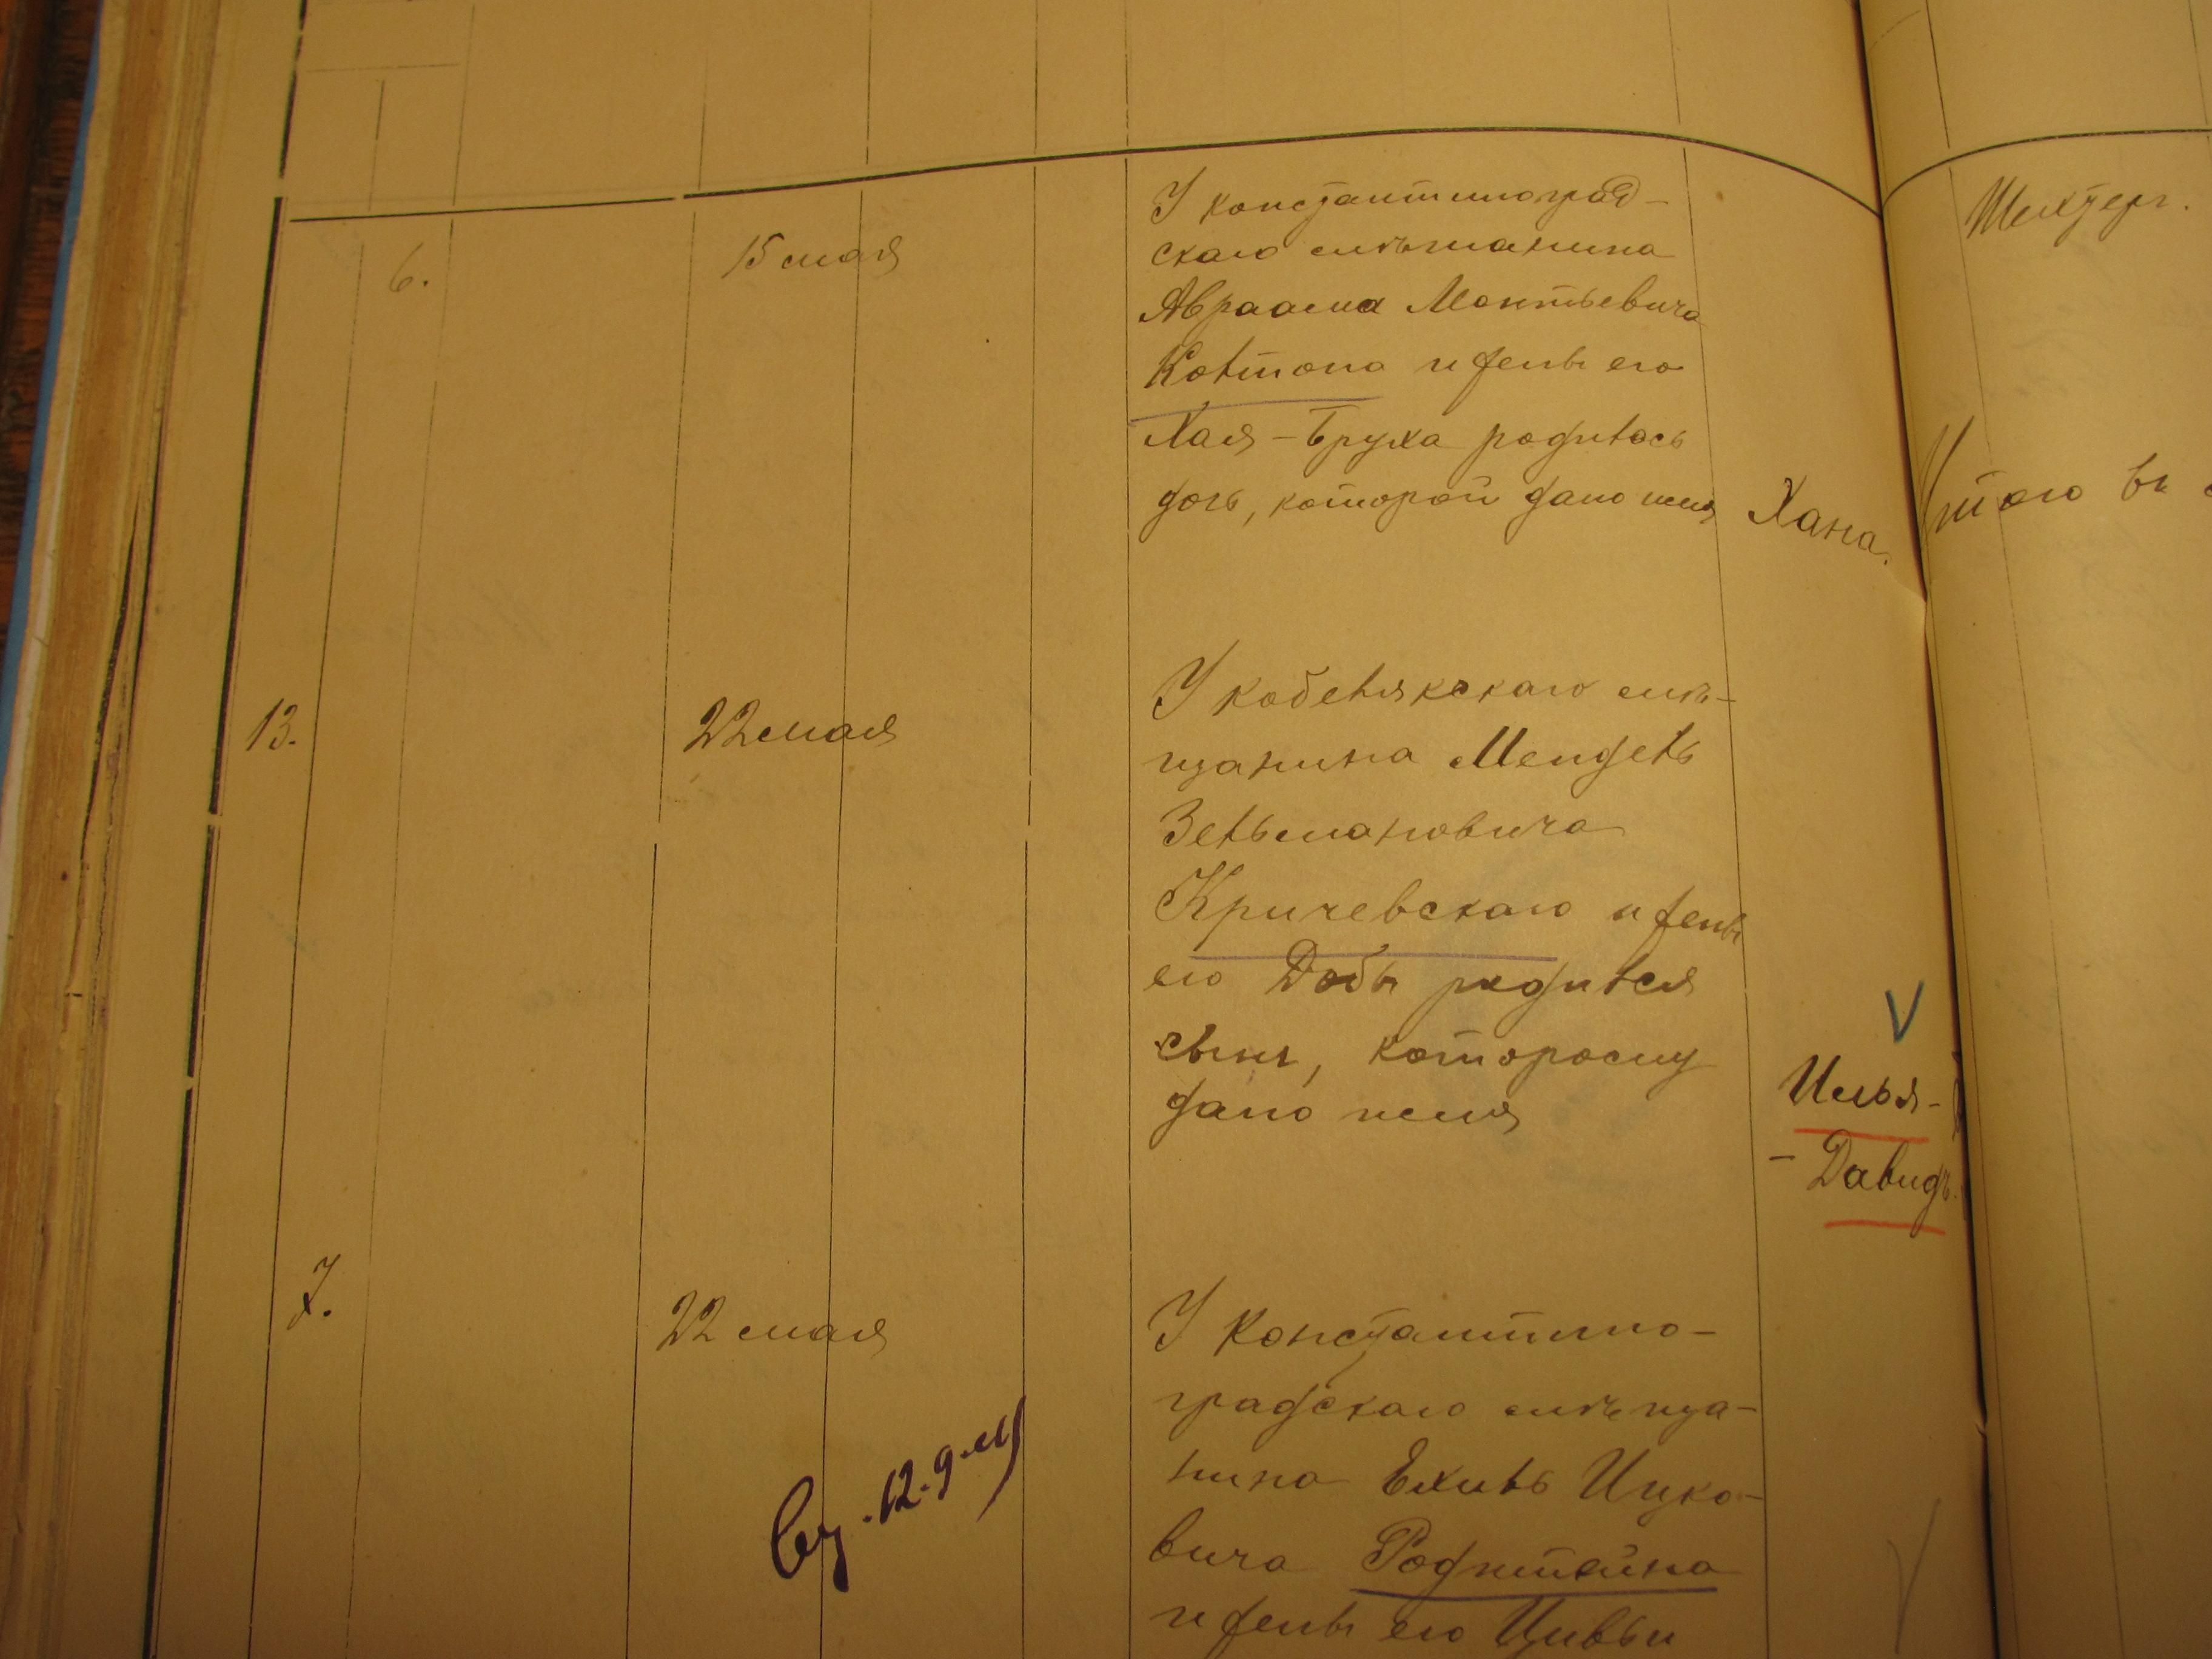 6.
15 мая
У константиноград-
скаго мѣщанина
Авраама
и жены его
Хая-Бруха родилась
дочь, которой дано имя
Хана.
13.
22 мая
У кобелякскаго мѣ-
щанина Мендель
Зельмановича
Кричевскаго и жены
его Добы родился
сынъ, которому
дано имя
Илья-
-Давидъ.
7.
22 мая
У Константино-
градскаго мѣща-
нина Ехиль Ицко-
вича Родштейна
и жены его Цивьи
Шехтеръ.
Итого въ